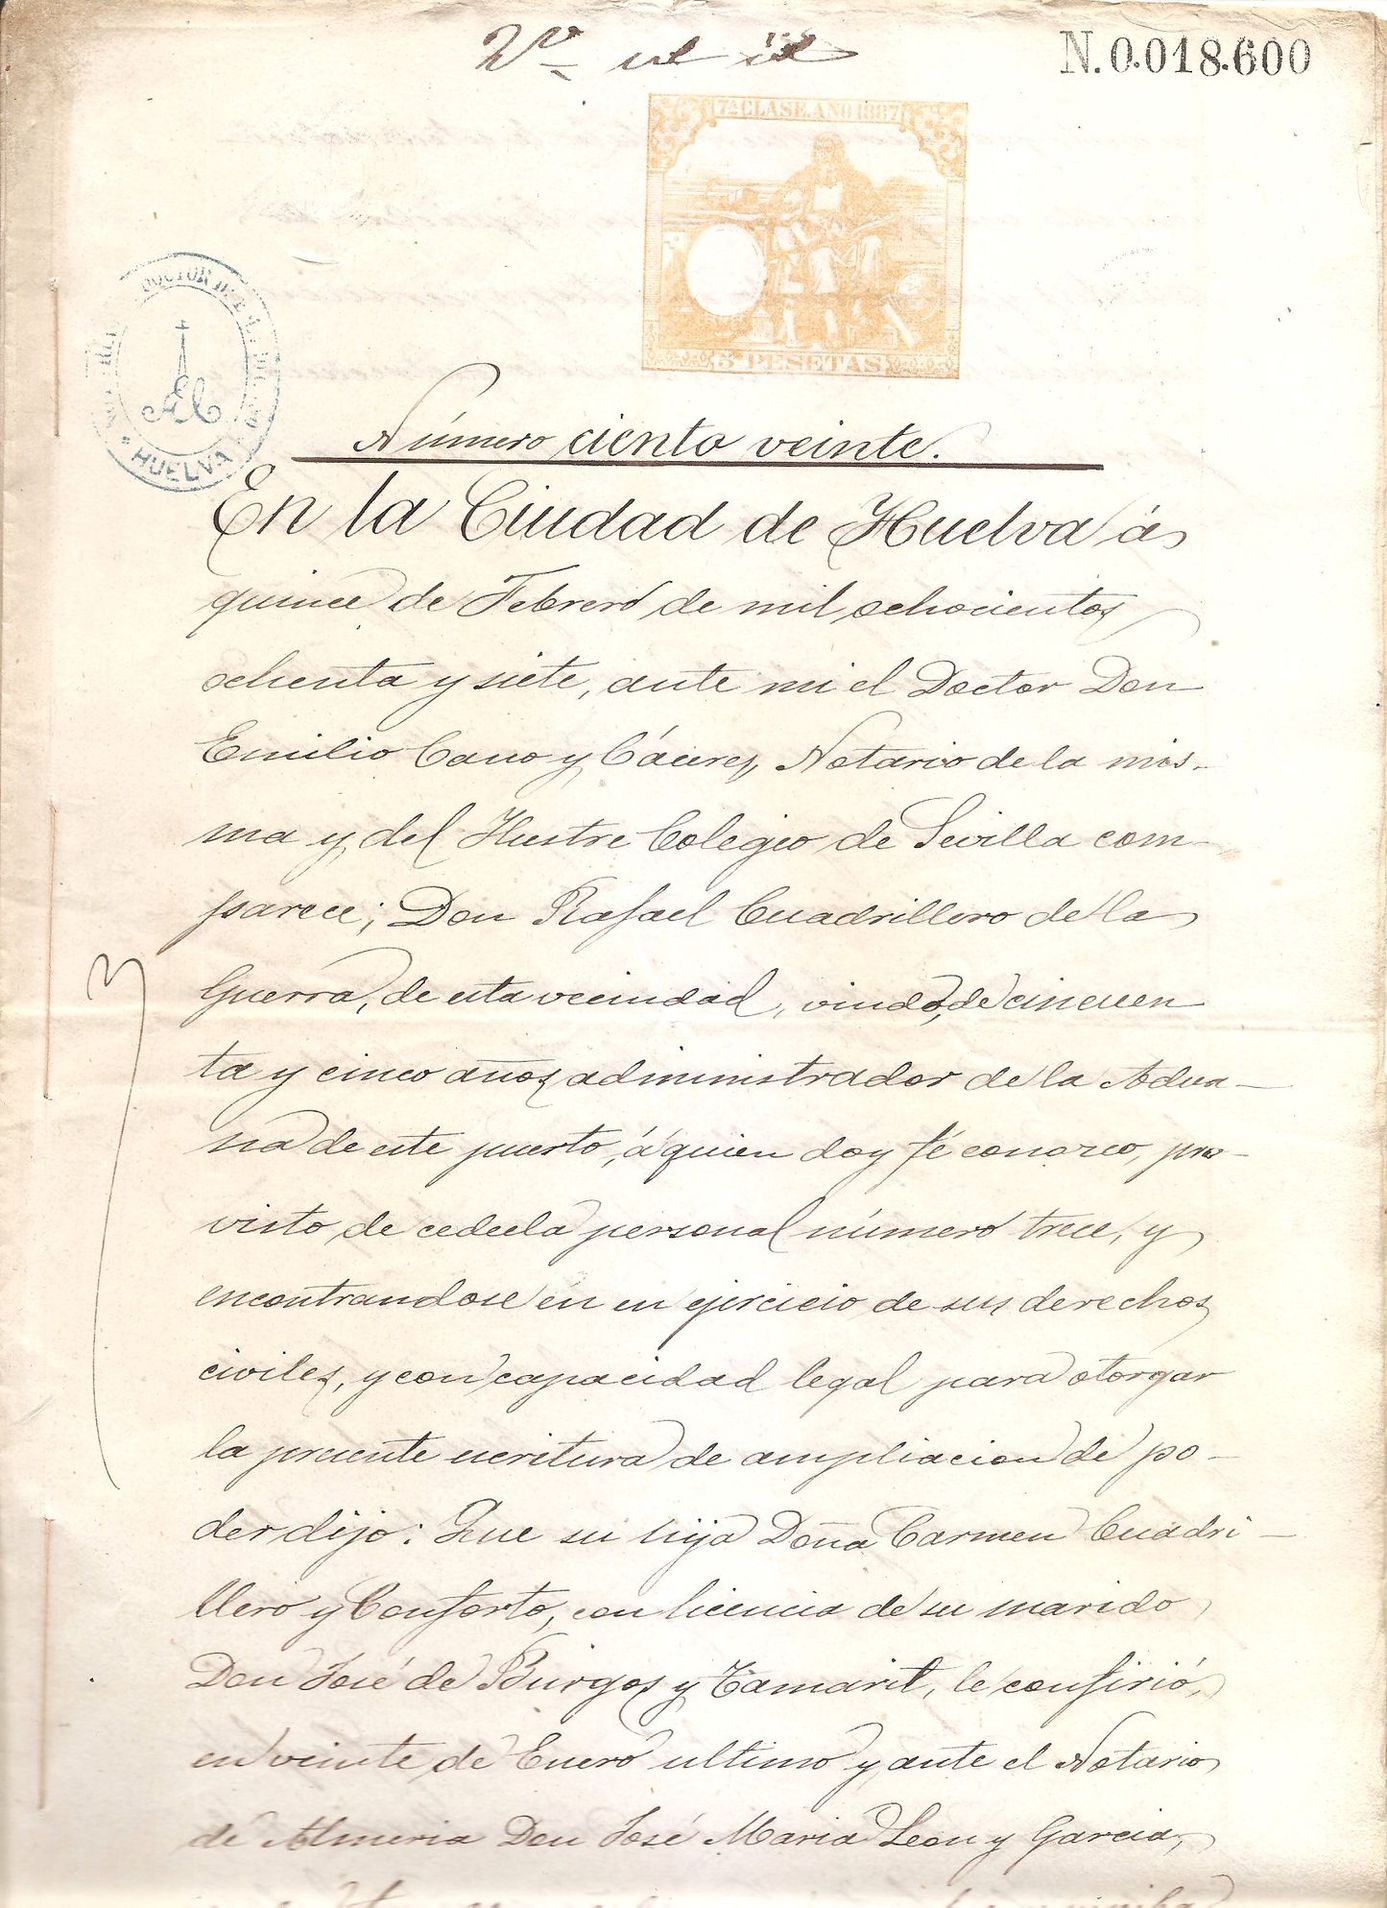 N.0.018.600
7ª CLASE. AÑO 1887
6 PESETAS
DOCTOR D. E.
HUELVA
Número ciento veinte.
En la Ciudad de Huelva á
quince de Febrero de mil ochocientos
ochenta y siete, ante mi el Doctor Don
Emilio Cano y Cáceres, Notario de la mis-
ma y del Ilustre Colegio de Sevilla com-
parece; Don Rafael Cuadrillero de la
Guerra, de esta vecindad, viudo, de cincuen
ta y cinco años, administrador de la Adua-
na de este puerto, á quien doy fé conozco, pro-
visto de cedula personal número trece, y
encontrandose en en ejercicio de sus derechos
civiles, y con capacidad legal para otorgar
la presente escritura de ampliacion de po-
der dijo: Que su hija Doña Carmen Cuadri-
llero y Conforto, con licencia de su marido
Don José de Burgos y Tamarit, le confirió,
en veinte de Enero ultimo y ante el Notario
de Almeria Don José Maria Leon y Garcia,